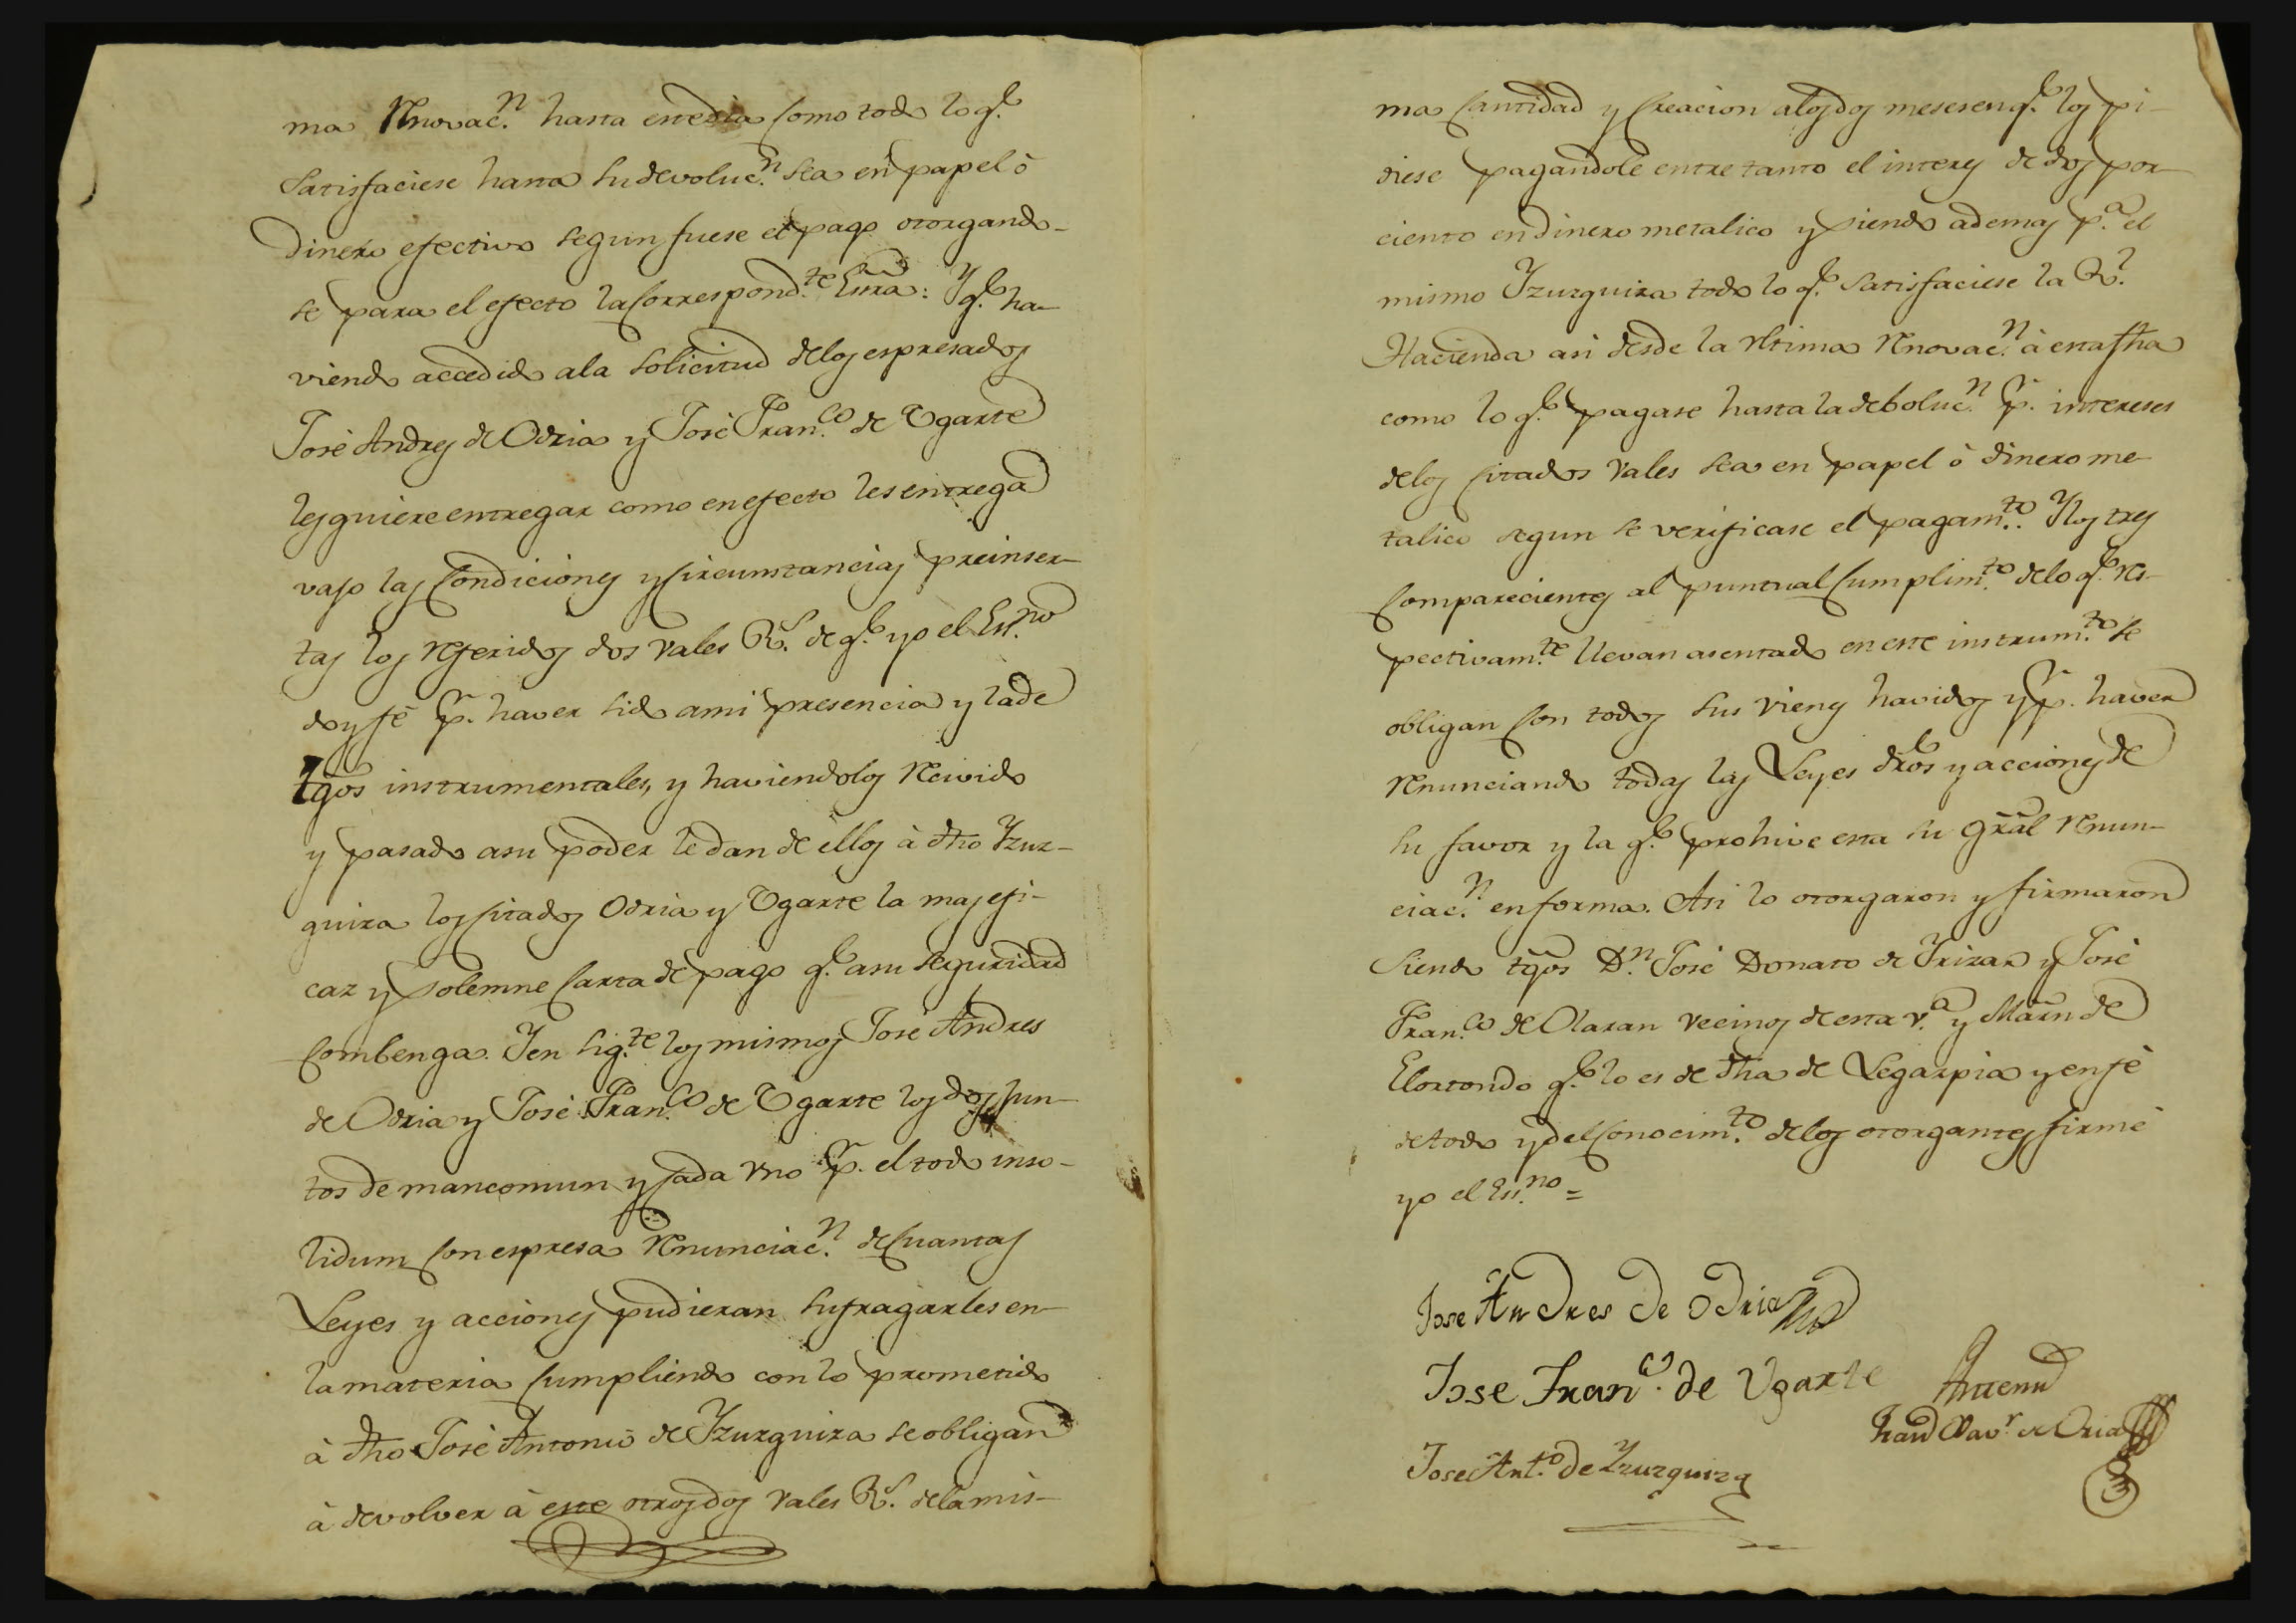 ma Renovac.n hasta este dia como todo lo q.e
satisfaciese hasta su devoluc.n sea en papel ò
dinero efectivo segun fuese el pago otorgando-
se para el efecto la correspond.te Essra: Y q.e ha-
viendo accedido a la solicitud de los espresados
José Andres de Odria y José Fran.co de Ugarte
les quiere entregar como en efecto les entrega
vajo las condiciones y circunstancias preinser-
tas los referidos dos vales R.s de q.e yo el Ess.no
doy fé p.r haver sido a mi presencia y la de
tgos instrumentales, y haviendolos recivido
y pasado a su poder le dan de éllos à dho Yzur-
quiza los citados Odria y Ugarte la mas efi-
caz y solemne carta de pago q.e a su seguridad
combenga. Y en sig.te los mismos José Andres
de Odria y José Fran.co de Ugarte los dos jun-
tos de mancomun y cada uno p.r el todo inso-
lidum con espresa renunciac.n de cuantas
Leyes y acciones pudieran sufragarles en
la materia cumpliendo con lo prometido
à dho José Antonio de Yzurquiza se obligan
à devolver à este otros dos vales R.s de la mis-
ma cantidad y creacion a los dos meses en q.e los pi-
diese pagandole entre tanto el interes de dos por
ciento en dinero metalico y siendo ademas p.a el
mismo Yzurquiza todo lo q.e satisfaciese la R.l
Hacienda asi desde la ultima renovac.n à esta fha
como lo q.e pagase hasta la deboluc.n p.r intereses
de los citados vales sea en papel ò dinero me-
talico segun se verificase el pagam.to Y los tres
comparecientes al puntual cumplim.to de lo q.e res-
pectivam.te llevan asentado en este instrum.to se
obligan con todos sus vienes havidos y p.r haver
renunciando todas las Leyes dros y acciones de
su favor y la q.e prohive esta su gral renun-
ciac.n en forma. Asi lo otorgaron y firmaron
siendo tgos D.n José Donato de Yrizar y José
Fran.co de Olaran vecinos de esta v.a y Marn de
Elortondo q.e lo es de dha de Legarpia y en fé
de todo y del conocim.to de los otorgantes firmé
yo el Ess.no =
Jose Andres de Odria
Jose Fran.co de Ugarte
Antemi
Jose Ant.o de Yzurquiza